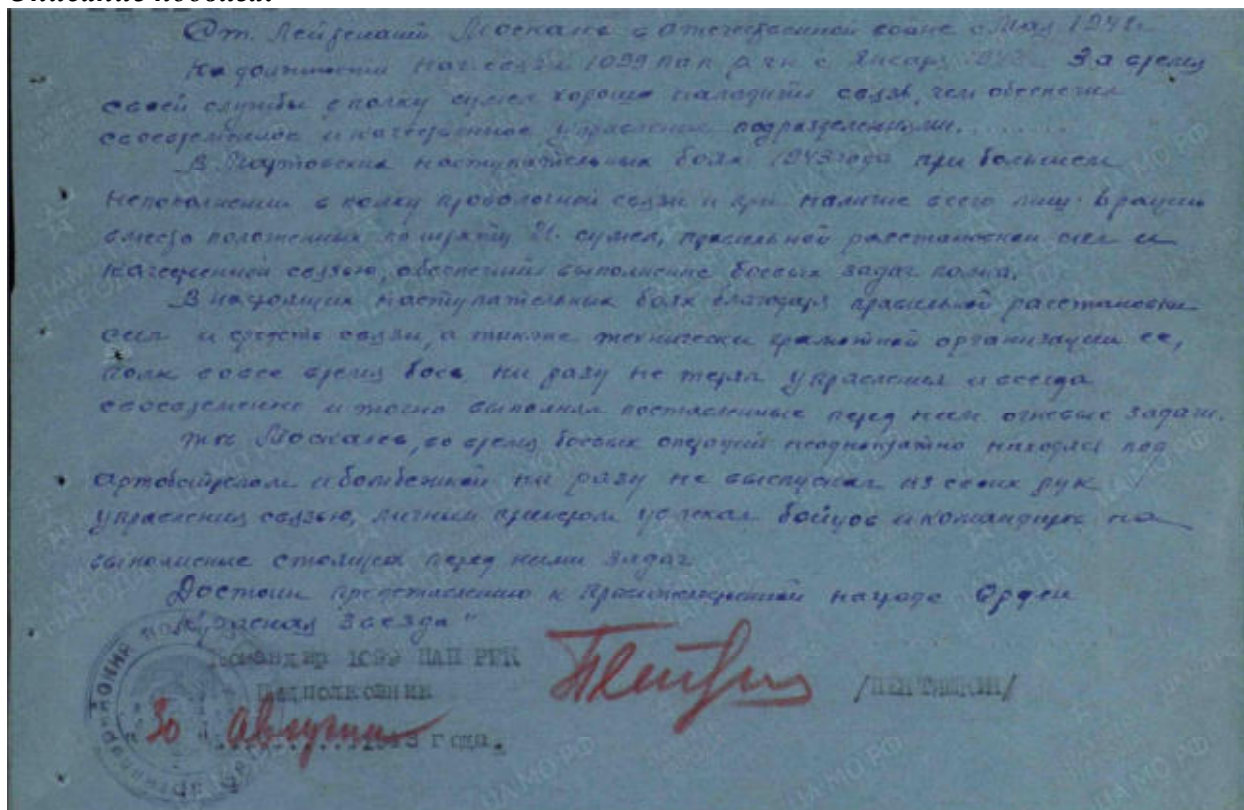 Описание подвига:
Ст. Лейтенант Москалев в отечественной войне с Мая 1942г.
На должности нач связи 1099 пап р.гк с Января 1943 За время
своей службы в полку сумел хорошо наладить связь, чем обеспечил
своевременное и качественное управление подразделениями.
В Мартовских наступательных боях 1943 года при большом
некомплекте в полку проводочной связи и при наличие всего лиш 6 раций
вместо положенных по штату 21. сумел, правильной расстановкой сил и
качественной связью, обеспечить выполнение боевых задач полка.
В настоящих наступательных боях благодаря правильной расстановки
сил и средств связи, а также технически грамотной организации ее,
полк во все время боев ни разу не терял управления и всегда
своевременно и точно выполнял поставленные перед ним огневые задачи.
Москалев, во время боевых операций неоднократно находясь под
артобстрелом и бомбежкой ни разу не выпускал из своих рук
управления связью, личным примером увлекал бойцов и командиров на
выполнение стоящих перед ними задач
Достоин представлению к Правительственной награде Орден
"Красная Звезда"
Командир 1099 ПАП РГК
Подполковник
/ПЕНТЮХИН/
30 Августа 1943 года.